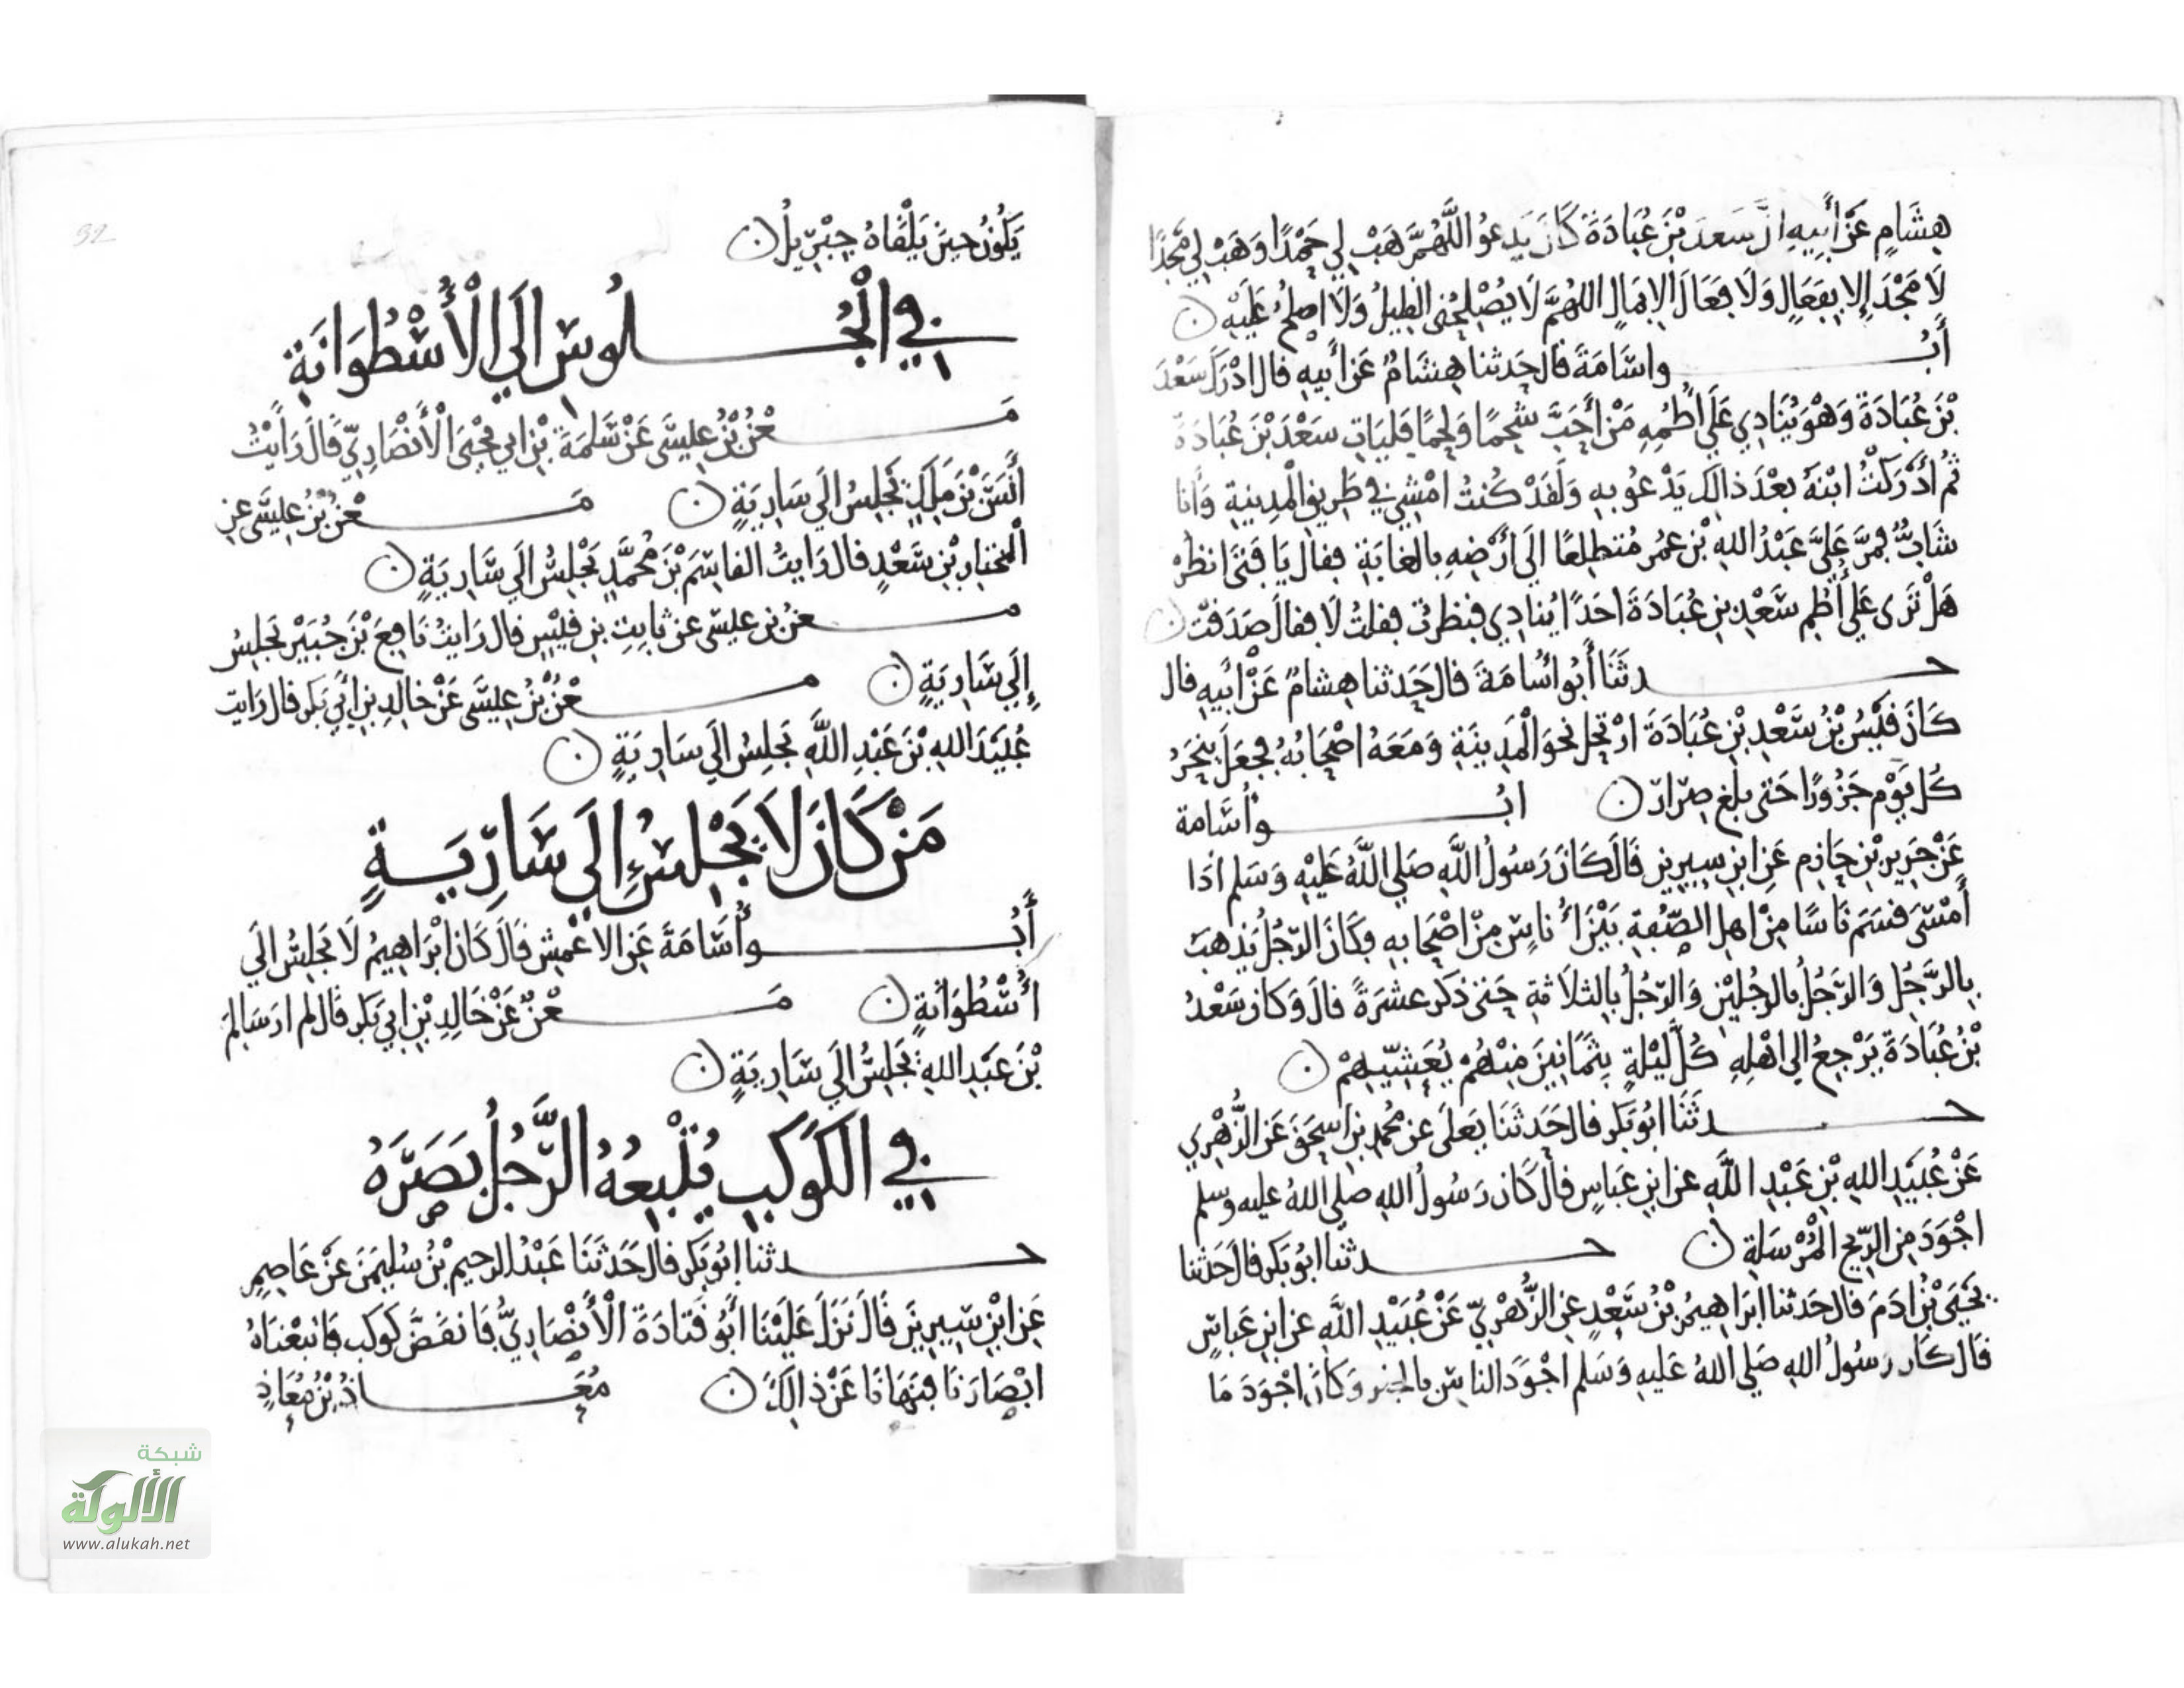 هِشَامٍ عَنْ أَبِيهِ انَّ سَعدَ بْنَ عُبَادَةَ كَانَ يَدعُو اللَّهُمَّ هَبْ لِي حَمْدًا وَهَبْ لِي مَجْدًا
لَا مَجْدَ إِلا بِفِعَالٍ وَلَا فِعَالَ الا بِمَالٍ اللهُمَّ لَا يُصْلِحُنِي القَلِيلُ وَلَا اصلحُ عَلَيْهِ
أَبُو اسَامَةَ قال حَدثنا هِشَامٌ عَن أَبيهِ قال ادْرَكتُ سَعْدَ
بْنَ عُبَادَةَ وَهْوَ يُنَادِي عَلَى أُطُمِهِ مَنْ أَحَبَّ شَحْمًا وَلَحْمًا فَليَاتِ سَعْدَ بْنَ عُبَادَةَ
ثُمَّ أَدْرَكْتُ ابْنَهُ بعْدَ ذالِكَ يَدْعُو بِهِ وَلَقَدْ كُنتُ امْشِي فِي طَرِيقِ الْمَدِينةِ وَأنا
شَابٌّ فمَرَّ عَلَيَّ عَبْدُ اللهِ بْن عمَر مُنطلِقًا الَى أَرْضِهِ بِالغابَةِ فقالَ يَا فَتَى انظرْ
هَلْ تَرَى عَلَى أُطُمِ سَعْدِ بنِ عُبَادَةَ احَدًا يُنادِي فنظرتُ فقلتُ لَا فقالَ صَدَقتَ
حدثَنَا أَبُو أُسَامَةَ قال حَدَثنا هِشامٌ عَنْ أَبيهِ قال
كَانَ قَيْسُ بْنُ سَعْدِ بْنِ عُبَادَةَ ارْتَحَلَ نحوَ الْمَدِينَةِ وَمَعَهُ اصْحَابُهُ فَجَعَلَ ينحَرُ
كُل يَوْمٍ جَزُورًا حَتى بلغ صِرَارَ ابُو أُسَامة
عَنْ جَرِيرِ بْنِ حَازِمٍ عَنِ ابنِ سِيرِين قَالَ كَانَ رَسُولُ اللَّهِ صَلى اللَّهُ عَلَيْهِ وَسَلم اذَا
أَمْسَى قسَمَ نَاسًا مِنْ اهلِ الصُّفةِ بَيْنَ أُناسٍ مِنْ اصْحَابِهِ فكَانَ الرَّجُلُ يَذهبُ
بِالرَّجُلِ وَالرَّجُلُ بالرجُليْنِ وَالرَّجُلُ بالثلاثةِ حَتى ذَكر عشرَةً قالَ وَكانَ سَعْدُ
بْنُ عُبَادَةَ يَرْجِعُ الى اهْلِهِ كُلَّ لَيْلةٍ بِثَمَانِينَ مِنْهُمْ يُعَشِّيهِمْ
حدثَنَا ابُو بَكر قال حَدَثَنَا يَعلَى عن محُمدِ بنِ اسحَق عَن الزُّهْرِي
عَنْ عُبَيْدِ اللهِ بْنِ عَبْدِ اللَّهِ عن ابْنِ عَبَاسٍ قالَ كَانَ رَسُولُ اللهِ صلى اللهُ عليه وسلم
اجْوَدَ مِن الرِّيحِ الْمُرْسَلةِ حدثنا ابُو بَكر قالَ حَدَثنا
يَحْيَى بْنُ ادَمَ قالَ حَدثنا ابْرَاهِيمُ بْنُ سَعْدٍ عنِ الزُّهْرِيِّ عَنْ عُبَيْدِ اللَّهِ عن ابنِ عَباسٍ
قالَ كَانَ رسُولُ اللهِ صَلى اللهُ عَليهِ وَسَلم اجْوَدَ الناسِ بالخير وَكَانَ اجْوَدَ مَا
32
يَكُونُ حِينَ يَلْقَاهُ جِبْرِيلُ
في الْجُلُوسِ الَى الْأُسْطُوَانَةِ
مَعْنُ بْنُ عِيسَى عَنْ سَلمَةَ بْنِ ابي يَحْيَى الْأَنْصَارِيِّ قَالَ رَأَيْتُ
أَنَسَ بْنَ مَلِكٍ يَجلِسُ الَى سَارِيَةٍ مَعْنُ بْنُ عِيسَى عنِ
الْمختارِ بْنِ سَعْدٍ قال رَايتُ القاسِمَ بْنَ مُحَمَّدٍ يَجْلِسُ الَى سَارِيَةٍ
معنُ بن عيسَى عن ثابِتِ بنِ قَيْسٍ قال رَايتُ نَافِعَ بْنَ جُبَيْرٍ يَجلِسُ
إِلَى سَارِيَةٍ معْنُ بْنُ عِيسَى عَنْ خالِدِ بنِ أَبي بَكر قال رَايت
عُبَيْدَ اللهِ بْنَ عَبْدِ اللَّهِ يَجلِسُ الَى سَارِيَةٍ
مَنْ كَانَ لَا يَجْلِسُ إِلَى سَارِيَةٍ
أَبُو أُسَامَةَ عَنِ الاعْمشِ قَالَ كَانَ ابْرَاهِيمُ لَا يَجلِسُ الَى
أُسْطُوَانَةٍ مَعْنٌ عَنْ خَالِدِ بْنِ ابي بَكر قَال لم ارَ سَالِمَ
بْنَ عَبْدِ اللهِ يَجَلِسُ الَى سَارِيَةٍ
في الكَوْكَبِ يُتْبِعُهُ الرَّجُلُ بَصَرَهُ
حدثنا ابُو بَكر قالَ حَدَثَنَا عَبْدُ الرحيم بْنُ سُليمَنَ عَنْ عَاصِمٍ
عَنِ ابْنِ سِيرِينَ قَالَ نَزَلَ عَلَيْنَا أَبُو قتادَةَ الْأَنْصَارِيُّ فَانقَضَّ كَوكَب فاتبعْنَاهُ
ابْصَارَنَا فنَهَانَا عَنْ ذالِكَ مُعَاذُ بْنُ مُعَاذٍ
شبكة
الألوكة
www.alukah.net